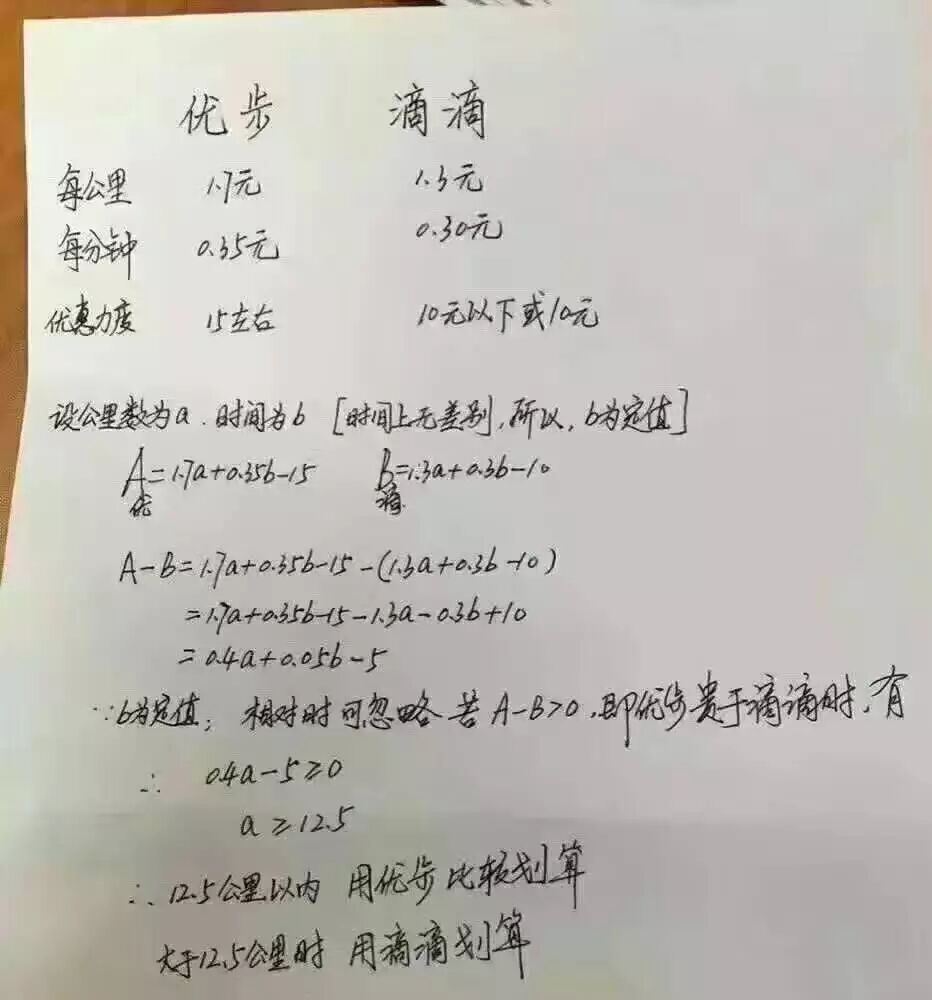 优步 滴滴
每公里 1.7元 1.3元
每分钟 0.35元 0.30元
优惠力度 15左右 10元以下或10元
设公里数为a.时间为b [时间上无差别,所以,b为定值]
A=1.7a+0.35b-15 B=1.3a+0.3b-10
优 滴
A-B=1.7a+0.35b-15-(1.3a+0.3b-10)
=1.7a+0.35b-15-1.3a-0.3b+10
=0.4a+0.05b-5
∵b为定值; 相对时可忽略 若A-B>0.即优步贵于滴滴时,有
∴ 0.4a-5≥0
a≥12.5
∴12.5公里以内 用优步比较划算
大于12.5公里时 用滴滴划算